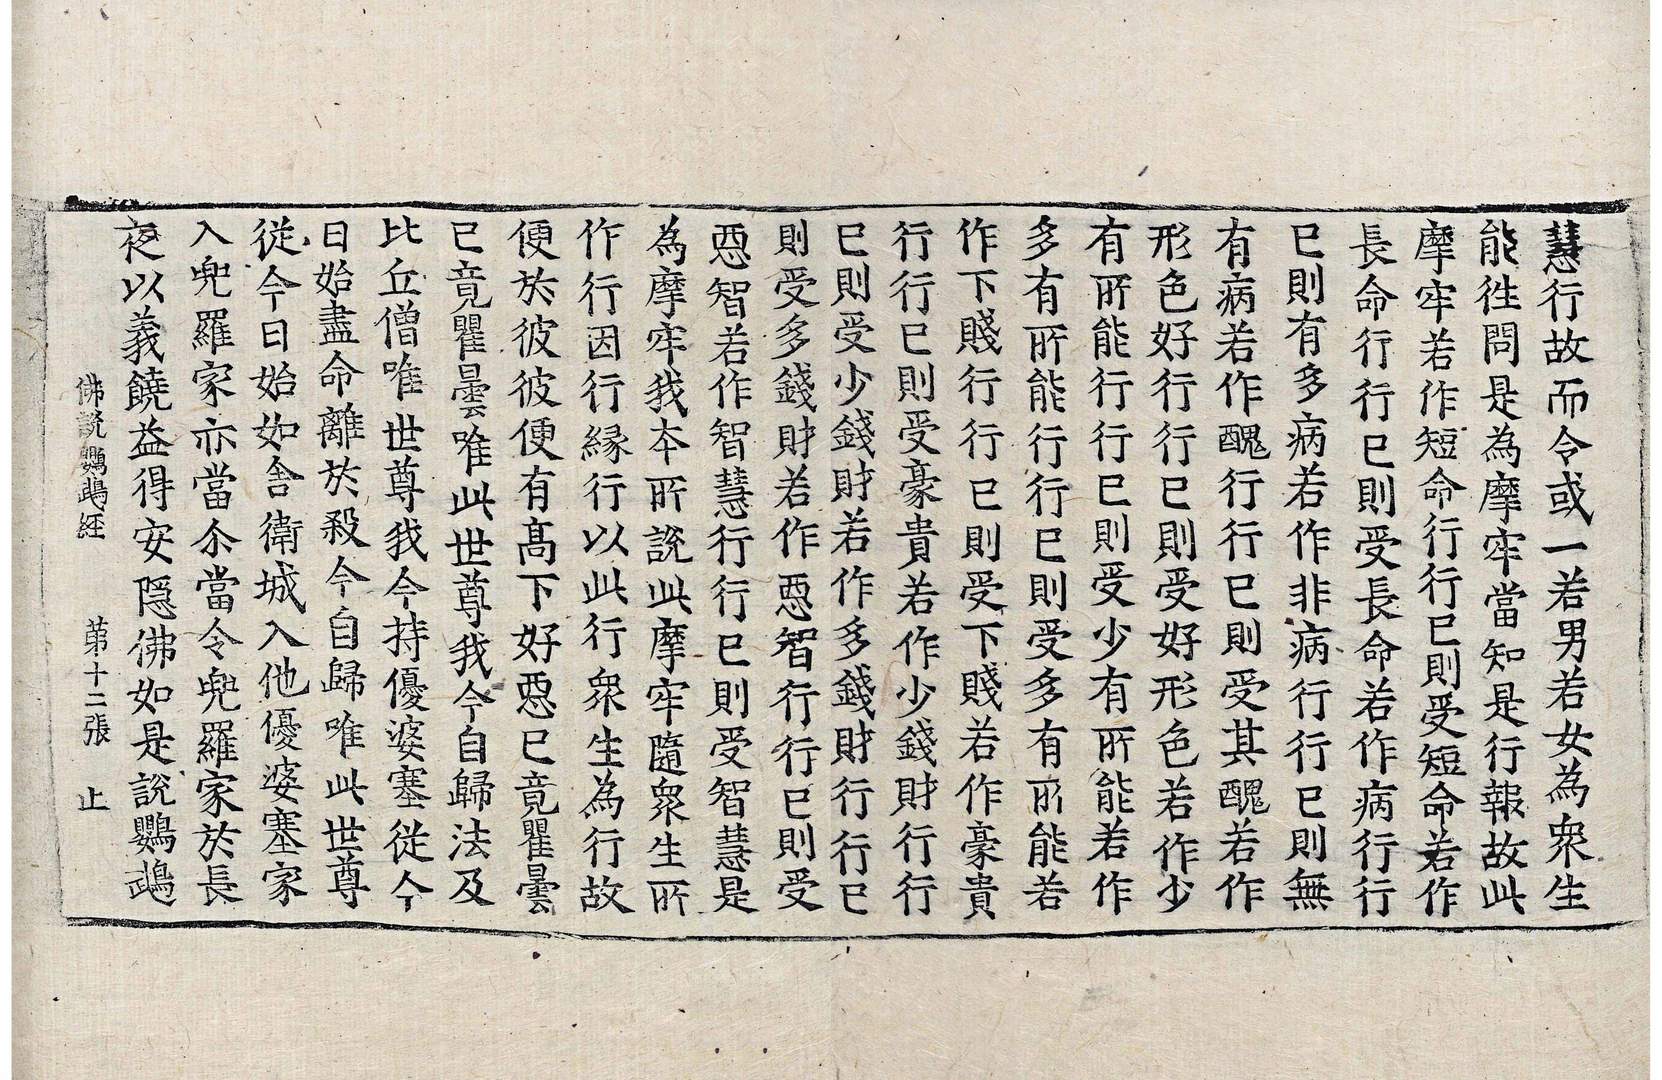 慧行故而令或一若男若女為衆生
能徃問是為摩牢當知是行報故此
摩牢若作短命行行已則受短命若作
長命行行已則受長命若作病行行
已則有多病若作非病行行已則無
有病若作醜行行已則受其醜若作
形色好行行已則受好形色若作少
有所能行行已則受少有所能若作
多有所能行行已則受多有所能若
作下賤行行已則受下賤若作豪貴
行行已則受豪貴若作少錢財行行
已則受少錢財若作多錢財行行已
則受多錢財若作惡智行行已則受
惡智若作智慧行行已則受智慧是
為摩牢我本所說此摩牢隨衆生所
作行因行緣行以此行衆生為行故
便於彼彼便有高下好惡已竟瞿曇
已竟瞿曇唯此世尊我今自歸法及
比丘僧唯世尊我今持優婆塞從今
日始盡命離於殺今自歸唯此世尊
從今日始如舍衛城入他優婆塞家
入兜羅家亦當尒當令兜羅家於長
夜以義饒益得安隱佛如是說鸚鵡
佛說鸚鵡經 第十二張 止